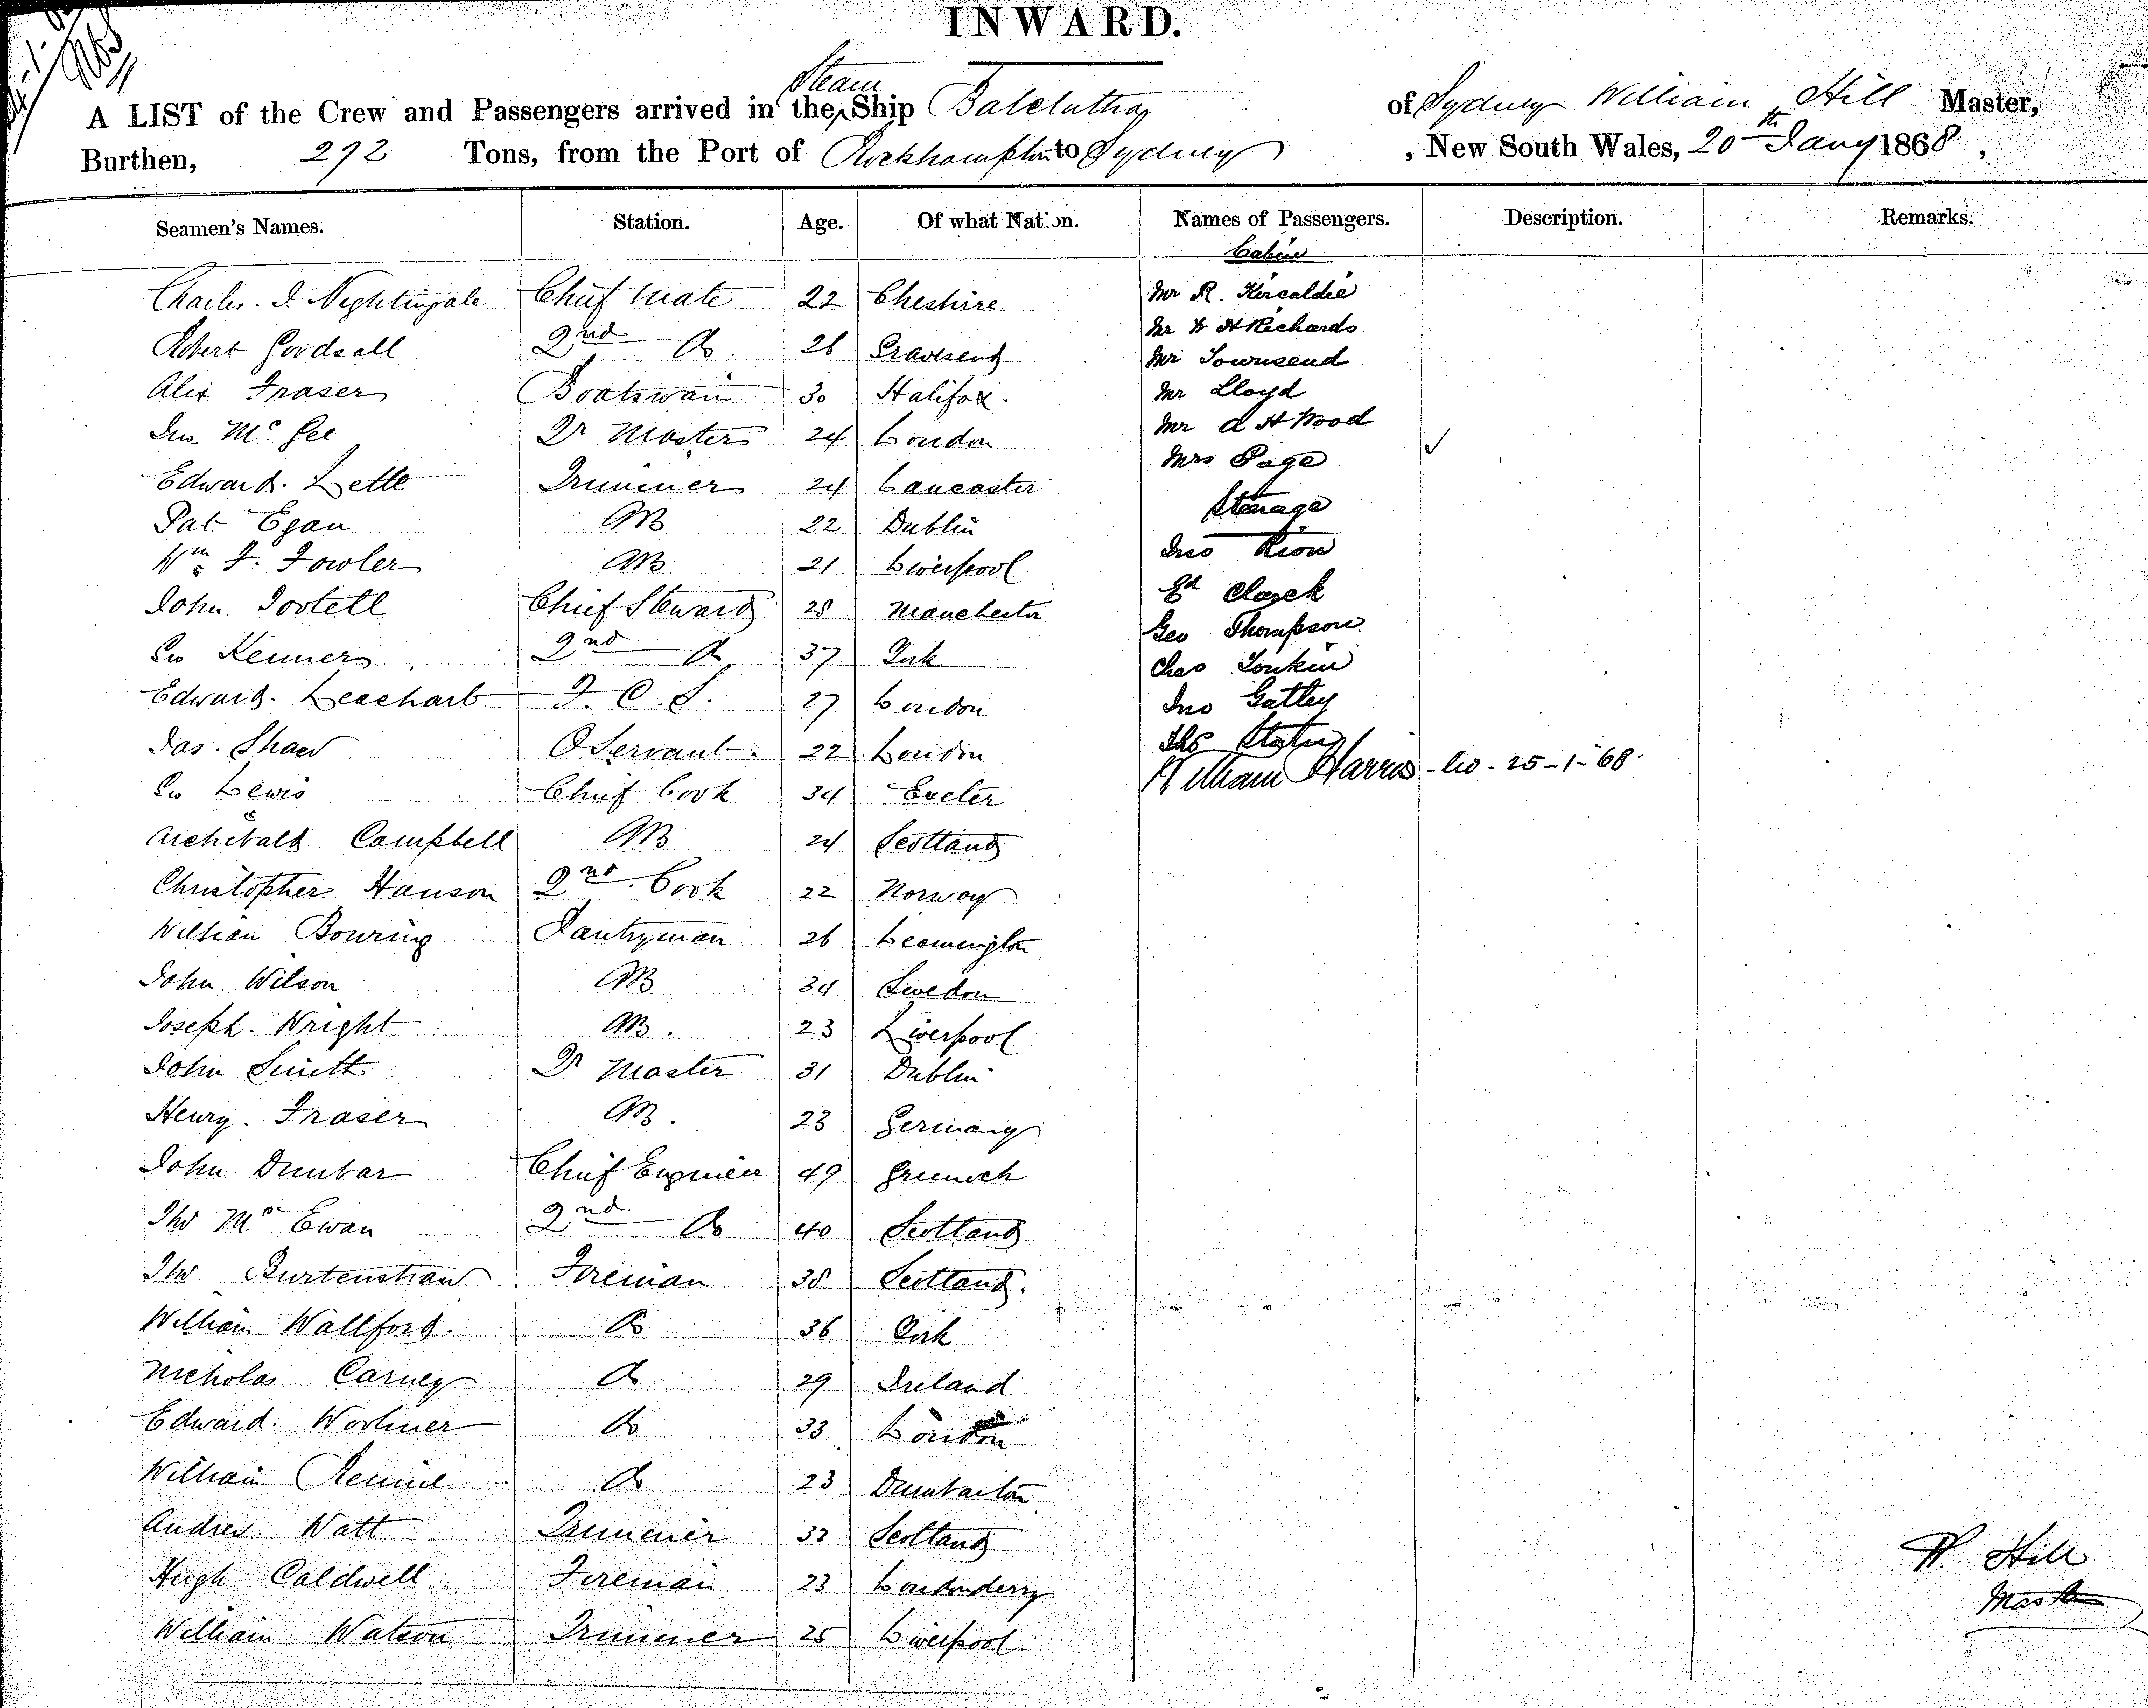 INWARD.
Steam
A LIST of the Crew and Passengers arrived in the Ship Balclutha of Sydney William Hill Master,
Burthen, 292 Tons, from the Port of Rockhampton to Sydney , New South Wales, 20th Jany 1868,
Seamen's Names. Station. Age. Of what Nation. Names of Passengers. Description. Remarks.
Cabin
Charles. I. Nightingale Chief Mate 22 Cheshire Mr R. Kircaldie
Robert Goodsall 2nd Do 26 Gravesend Mr W H Richards
Alex Fraser Boatswain 30 Halifax. Mr Townsend
Jno McGee Qr Master 24 London Mr Lloyd
Edward. Lette Trimmer 24 Lancaster Mr A H Wood
Pat Egan AB 22 Dublin Mrs Page
Wm F. Fowler AB 21 Liverpool Steerage
John Tostell Chief Steward 28 Manchester Jno Rion
Geo Kenner 2nd Do 37 Cork Ed Clozek
Edward. Leachart F. C. S. 27 London Geo Thompson
Jas. Shaw O Servant 22 London Chas Tonkin
Geo Lewis Chief Cook 34 Exeter Jno Gatley
Archibald Campbell AB 24 Scotland
Christopher Hanson 2nd Cook 22 Norway William Harris - Co - 25-1-68.
William Bowring Pantryman 26 Leamington
John Wilson AB 34 Swedon
Joseph Wright AB. 23 Liverpool
John Smith Qr Master 31 Dublin
Henry. Fraser AB. 23 Germany
John Dunbar Chief Engineer 49 Greenwich
Tho McEwan 2nd Do 40 Scotland
Tho Burtenshaw Fireman 38 Scotland.
William Wallford. Do 36 Cork
Nicholas Carney Do 29 Ireland
Edward. Worliner Do 33 London
William Rennie Do 23 Dumbarton
Andrew Watt Trimmer 32 Scotland
Hugh Caldwell Fireman 23 Londonderry
William Watson Trimmer 25 Liverpool
W Hill
Master